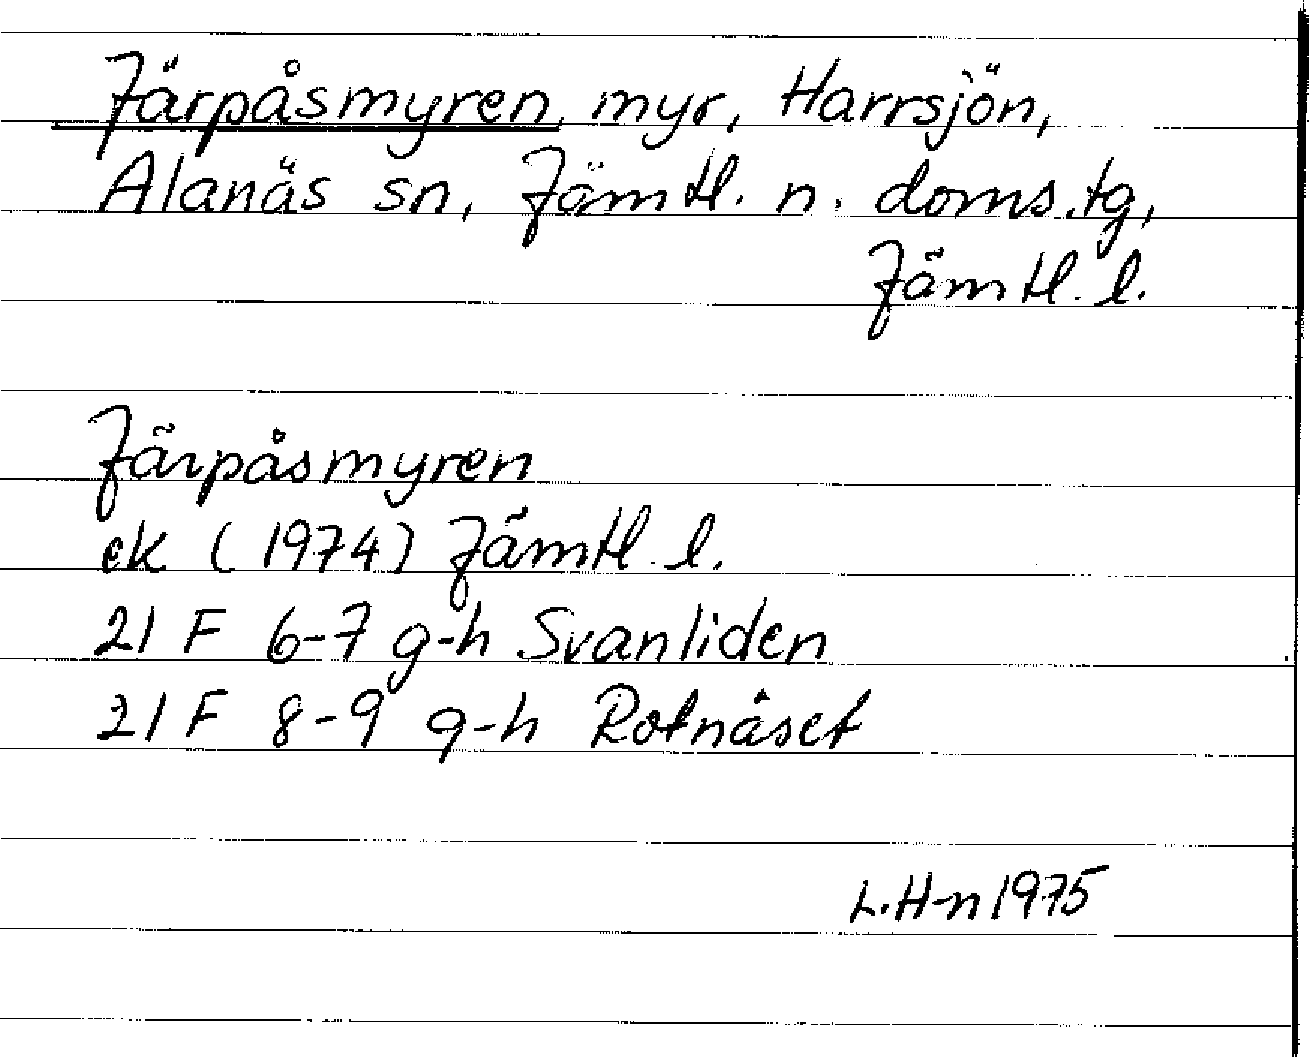 Järpåsmyren, myr, Harrsjön,
Alanäs sn, Jämtl. n. doms.tg,
Jämtl. l.
Järpåsmyren
ek (1974) Jämtl. l.
21 F 6-7 g-h Svanliden
21 F 8-9 g-h Rotnäset
L.H-n 1975